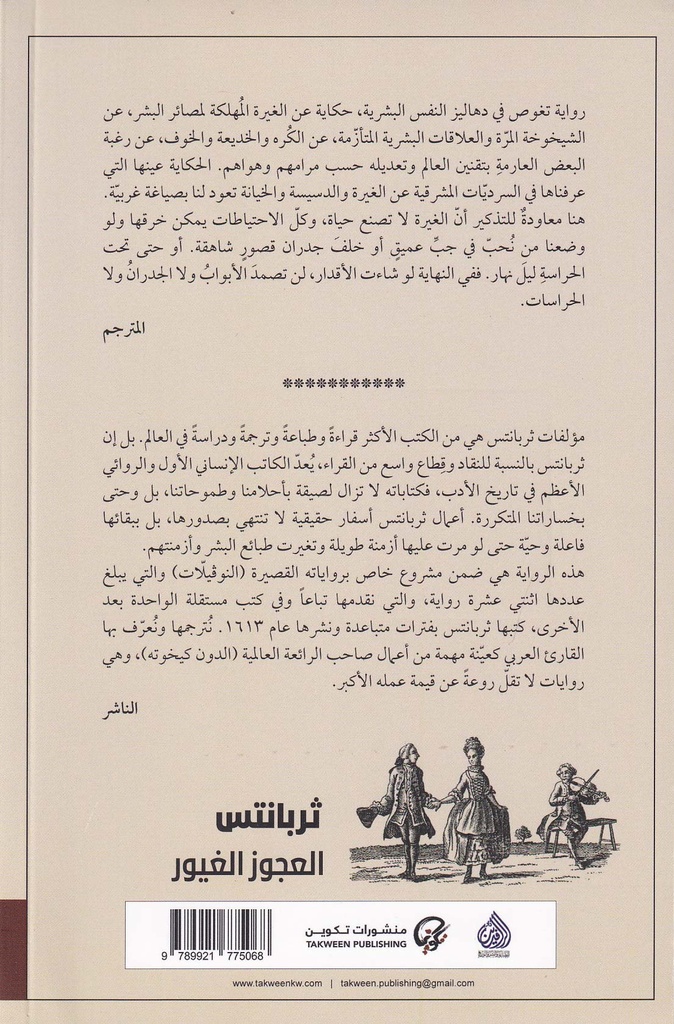 رواية تغوص في دهاليز النفس البشرية، حكاية عن الغيرة المُهلكة لمصائر البشر، عن
الشيخوخة المرّة والعلاقات البشرية المتأزّمة، عن الكُره والخديعة والخوف، عن رغبة
البعض العارمةِ بتقنين العالم وتعديله حسب مرامهم وهواهم. الحكاية عينها التي
عرفناها في السرديّات المشرقية عن الغيرة والدسيسة والخيانة تعود لنا بصياغة غربيّة.
هنا معاودةٌ للتذكير أنّ الغيرة لا تصنع حياة، وكلّ الاحتياطات يمكن خرقها ولو
وضعنا من نُحبّ في جبٍّ عميقٍ أو خلفَ جدران قصورٍ شاهقة. أو حتى تحت
الحراسةِ ليلَ نهار. ففي النهاية لو شاءت الأقدار، لن تصمدَ الأبوابُ ولا الجدرانُ ولا
الحراسات.
المترجم
***********
مؤلفات ثربانتس هي من الكتب الأكثر قراءةً وطباعةً وترجمةً ودراسةً في العالم. بل إن
ثربانتس بالنسبة للنقاد وقِطاع واسع من القراء، يُعدّ الكاتب الإنساني الأول والروائي
الأعظم في تاريخ الأدب، فكتاباته لا تزال لصيقة بأحلامنا وطموحاتنا، بل وحتى
بخساراتنا المتكررة. أعمال ثربانتس أسفار حقيقية لا تنتهي بصدورها، بل ببقائها
فاعلة وحيّة حتى لو مرت عليها أزمنة طويلة وتغيرت طبائع البشر وأزمنتهم.
هذه الرواية هي ضمن مشروع خاص برواياته القصيرة (النوڤيلّات) والتي يبلغ
عددها اثنتي عشرة رواية، والتي نقدمها تباعاً وفي كتب مستقلة الواحدة بعد
الأخرى، كتبها ثربانتس بفترات متباعدة ونشرها عام ١٦١٣. نُترجمها ونُعرّف بها
القارئ العربي كعيّنة مهمة من أعمال صاحب الرائعة العالمية (الدون كيخوته)، وهي
روايات لا تقلّ روعةً عن قيمة عمله الأكبر.
الناشر
ثربانتس
العجوز الغيور
9 789921 775068
منشورات تكوين
TAKWEEN PUBLISHING
تكوين
الرافدين
www.takweenkw.com | takween.publishing@gmail.com